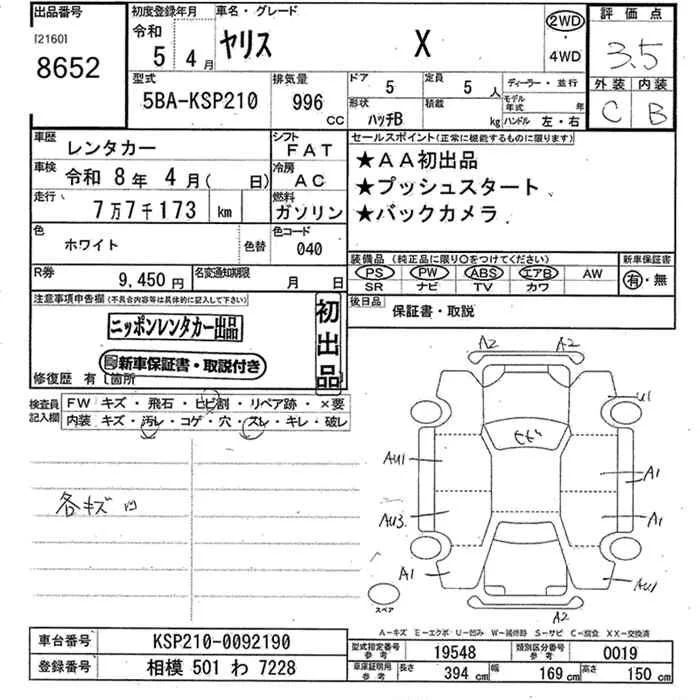 出品番号
[2160]
8652
初度登録年月
令和
5 4月
車名・グレード
ヤリス X
2WD
・
4WD
評価点
3.5
外装 内装
C B
型式
5BA-KSP210
排気量
996
CC
ドア
5
定員
5 人
ディーラー・並行
形状
ハッチB
積載
kg
モデル年式
年
ハンドル 左・右
車歴
レンタカー
シフト
FAT
車検
令和 8年 4月( 日)
冷房
AC
走行
7万7千173 km
燃料
ガソリン
色
ホワイト
色替
色コード
040
R券
9,450円
名変通知期限
月 日
セールスポイント(正常に機能するものに限ります)
★AA初出品
★プッシュスタート
★バックカメラ
装備品(純正品に限り○をつけてください)
PS PW ABS エアB AW
SR ナビ TV カワ
新車保証書
有・無
後日品
保証書・取説
注意事項申告欄(不具合内容等は具体的に記入して下さい)
ニッポンレンタカー出品
新車保証書・取説付き
初出品
修復歴 有 [箇所
検査員記入欄
FW キズ・飛石・ヒビ割・リペア跡・×要
内装 キズ・汚レ・コゲ・穴・スレ・キレ・破レ
各キズ凹
A2 A2
U1
ヒビ
AU1
A1
AU3
A1
A1
AU1
A2
スペア
A-キズ E-エクボ U-凹み W-補修跡 S-サビ C-腐食 XX-交換済
車台番号
KSP210-0092190
登録番号
相模 501 わ 7228
型式指定番号
参考
19548
類別区分番号
参考
0019
車庫証明用
参考
長さ
394 cm
幅
169 cm
高さ
150 cm